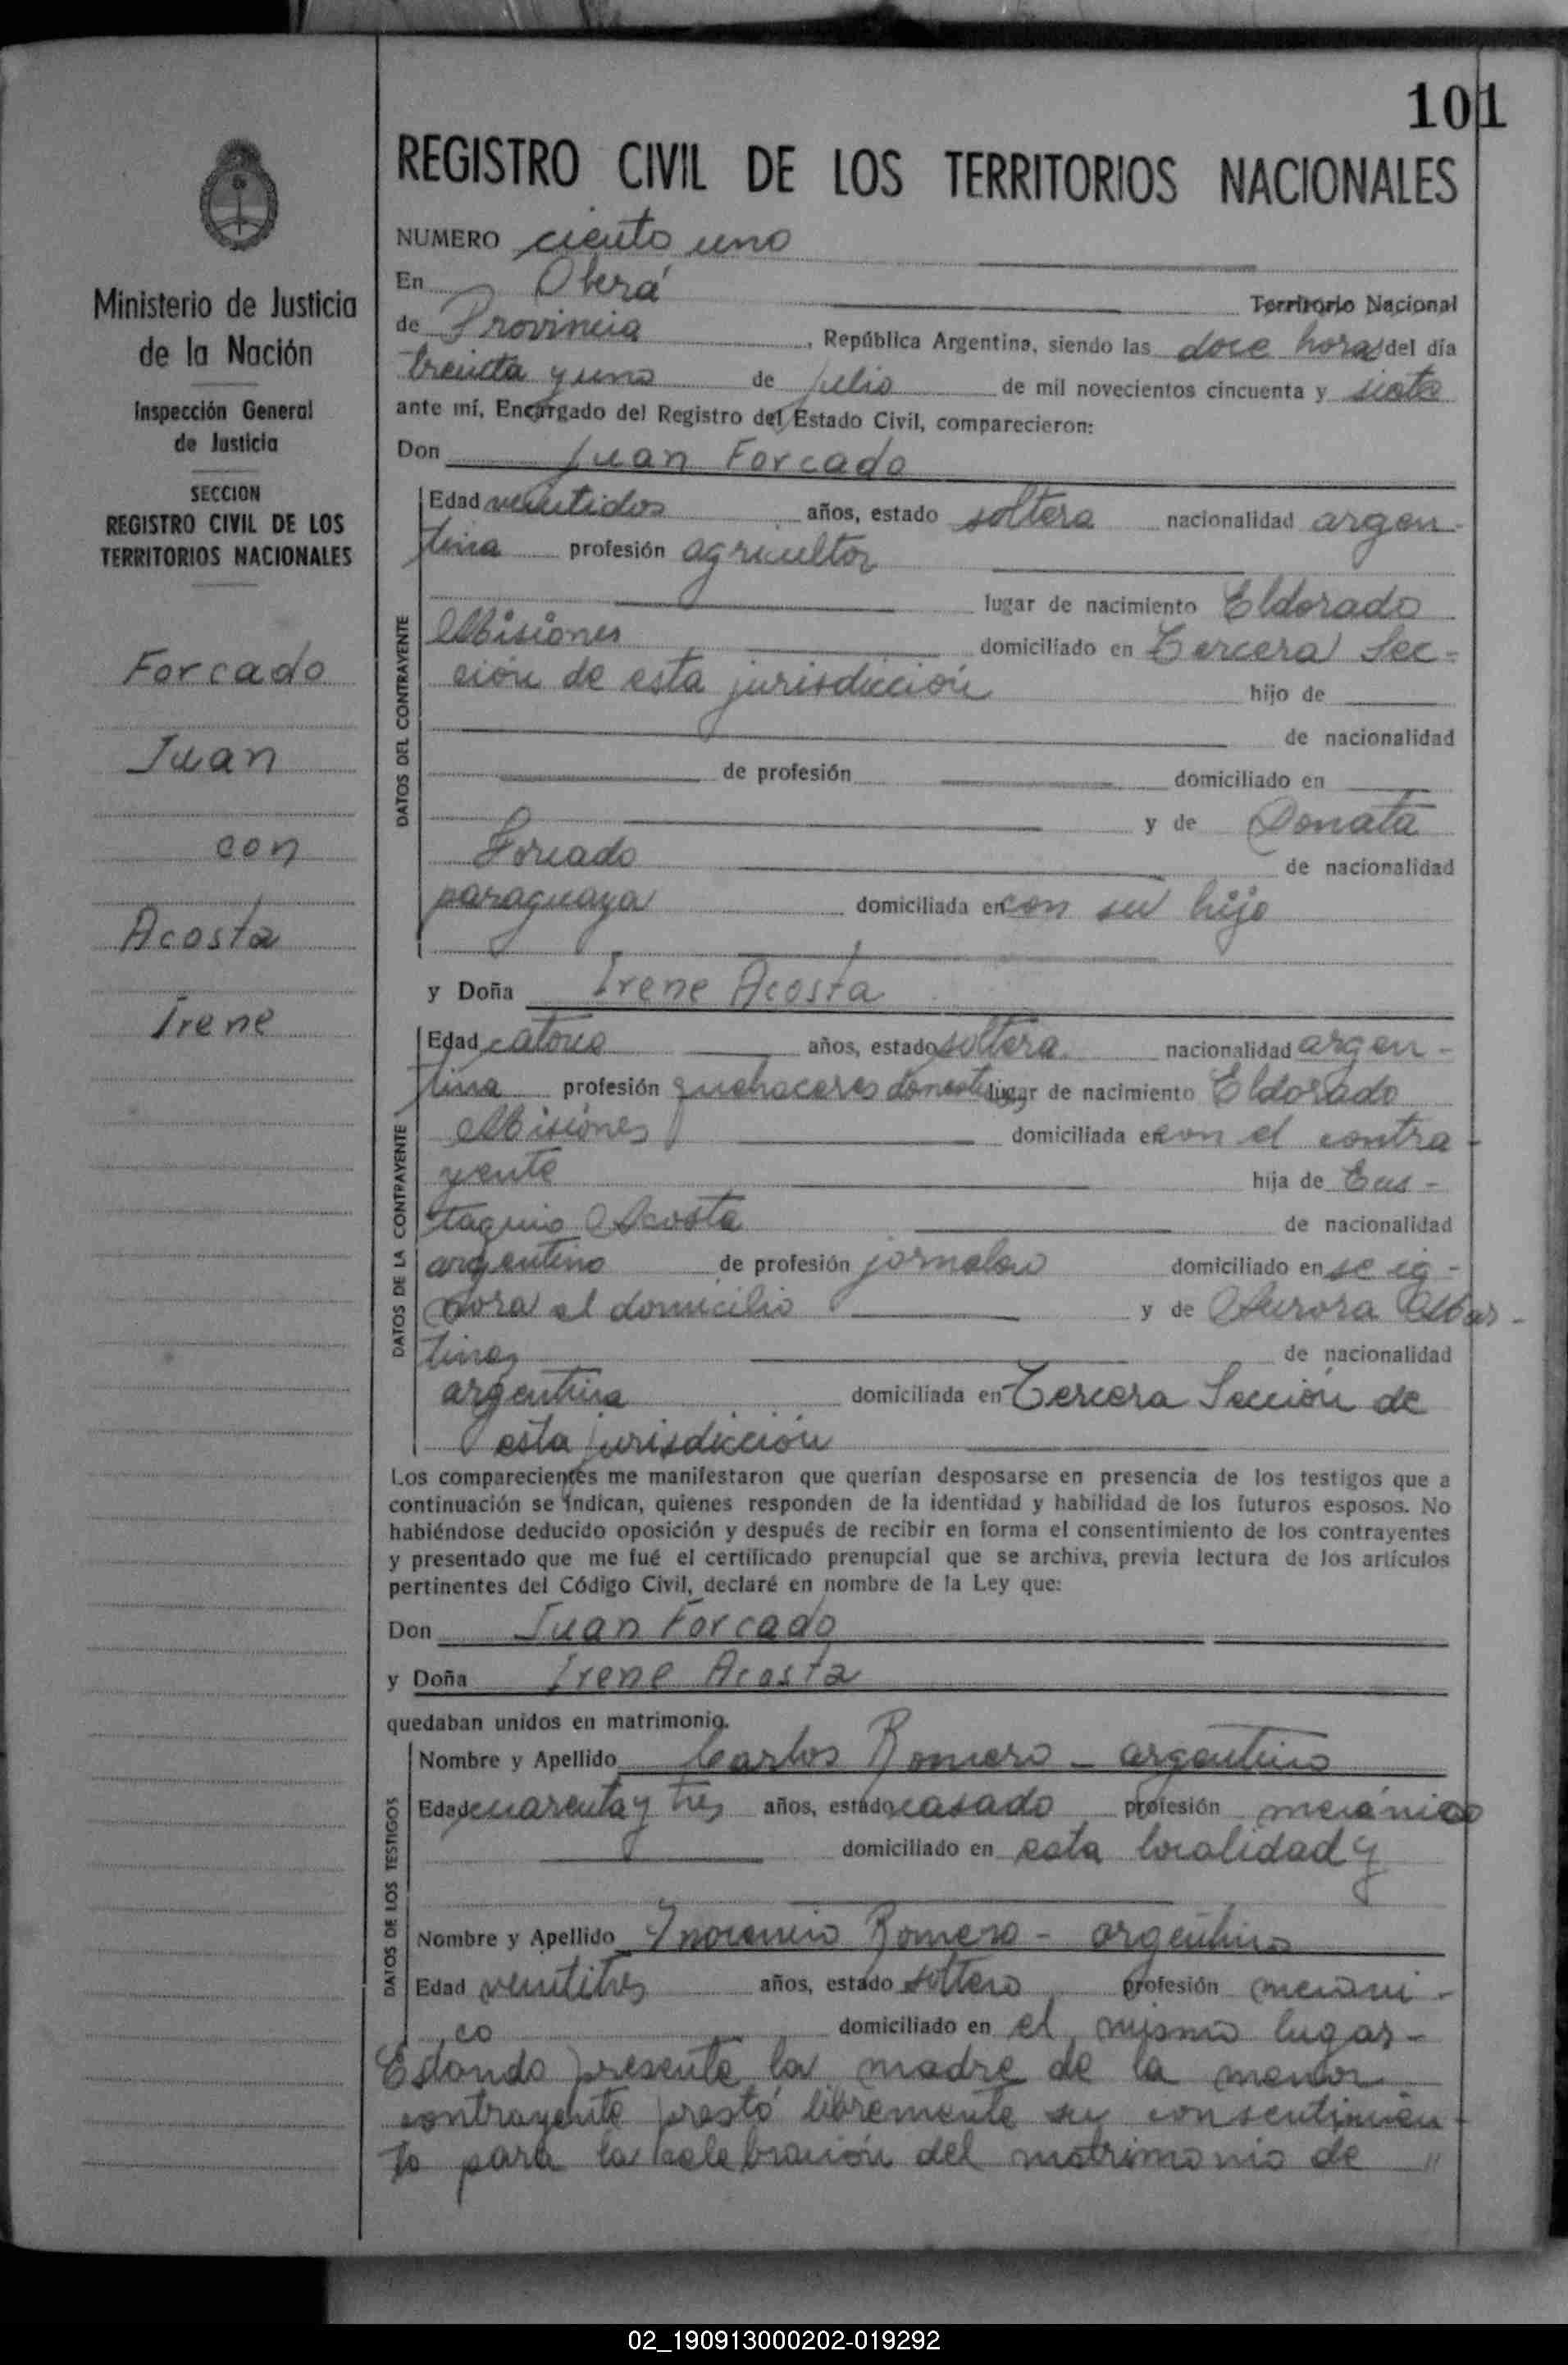 101
REGISTRO CIVIL DE LOS TERRITORIOS NACIONALES
NUMERO ciento uno
En Oberá Territorio Nacional
de Provincia, República Argentina, siendo las doce horas del día
treinta y uno de julio de mil novecientos cincuenta y siete
ante mí, Encargado del Registro del Estado Civil, comparecieron:
Don Juan Forcado
DATOS DEL CONTRAYENTE
Edad veintidos años, estado soltero nacionalidad argen-
tina profesión agricultor
lugar de nacimiento Eldorado
Misiones domiciliado en Tercera Sec-
ción de esta jurisdicción hijo de
de nacionalidad
de profesión domiciliado en
y de Donata
Forcado de nacionalidad
paraguaya domiciliada en con su hijo
y Doña Irene Acosta
DATOS DE LA CONTRAYENTE
Edad catorce años, estado soltera nacionalidad argen-
tina profesión quehaceres domesticos lugar de nacimiento Eldorado
Misiones domiciliada en con el contra-
yente hija de Eus-
taquio Acosta de nacionalidad
argentino de profesión jornalero domiciliado en se ig-
nora el domicilio y de Aurora Mar-
tinez de nacionalidad
argentina domiciliada en Tercera Sección de
esta jurisdicción
Los comparecientes me manifestaron que querían desposarse en presencia de los testigos que a
continuación se indican, quienes responden de la identidad y habilidad de los futuros esposos. No
habiéndose deducido oposición y después de recibir en forma el consentimiento de los contrayentes
y presentado que me fué el certificado prenupcial que se archiva, previa lectura de los artículos
pertinentes del Código Civil, declaré en nombre de la Ley que:
Don Juan Forcado
y Doña Irene Acosta
quedaban unidos en matrimonio.
DATOS DE LOS TESTIGOS
Nombre y Apellido Carlos Romero - argentino
Edad cuarenta y tres años, estado casado profesión mecánico
domiciliado en esta localidad y
Nombre y Apellido Inocencio Romero - argentino
Edad veintitres años, estado soltero profesión mecáni-
co domiciliado en el mismo lugar-
Estando presente la madre de la menor
contrayente prestó libremente su consentimien-
to para la celebración del matrimonio de "
Ministerio de Justicia
de la Nación
Inspección General
de Justicia
SECCION
REGISTRO CIVIL DE LOS
TERRITORIOS NACIONALES
Forcado
Juan
con
Acosta
Irene
02_190913000202-019292